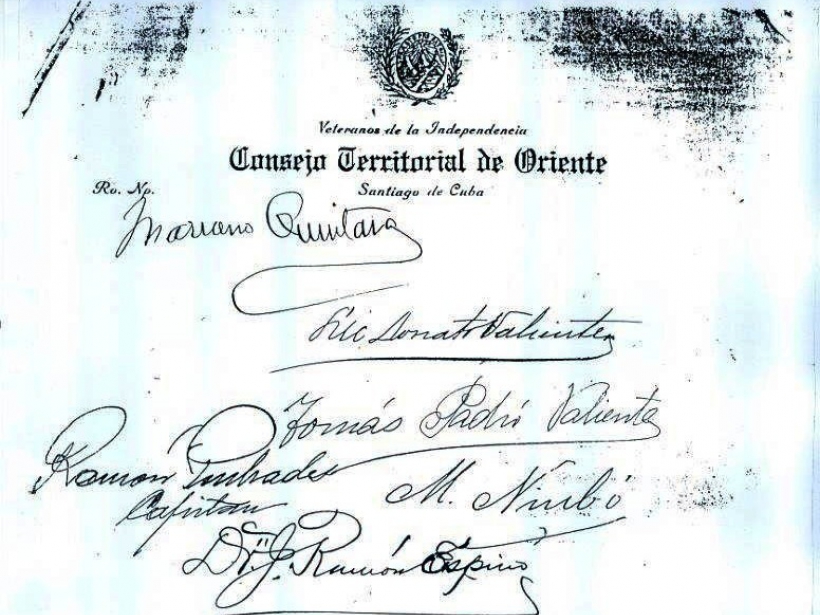 Veteranos de la Independencia
Consejo Territorial de Oriente
Ro. Np.
Santiago de Cuba
Mariano Quintana
Lic Donato Valiente
Tomás Padró Valiente
Ramón
Capitan
M. Nimbó
Dr. J. Ramón Espino